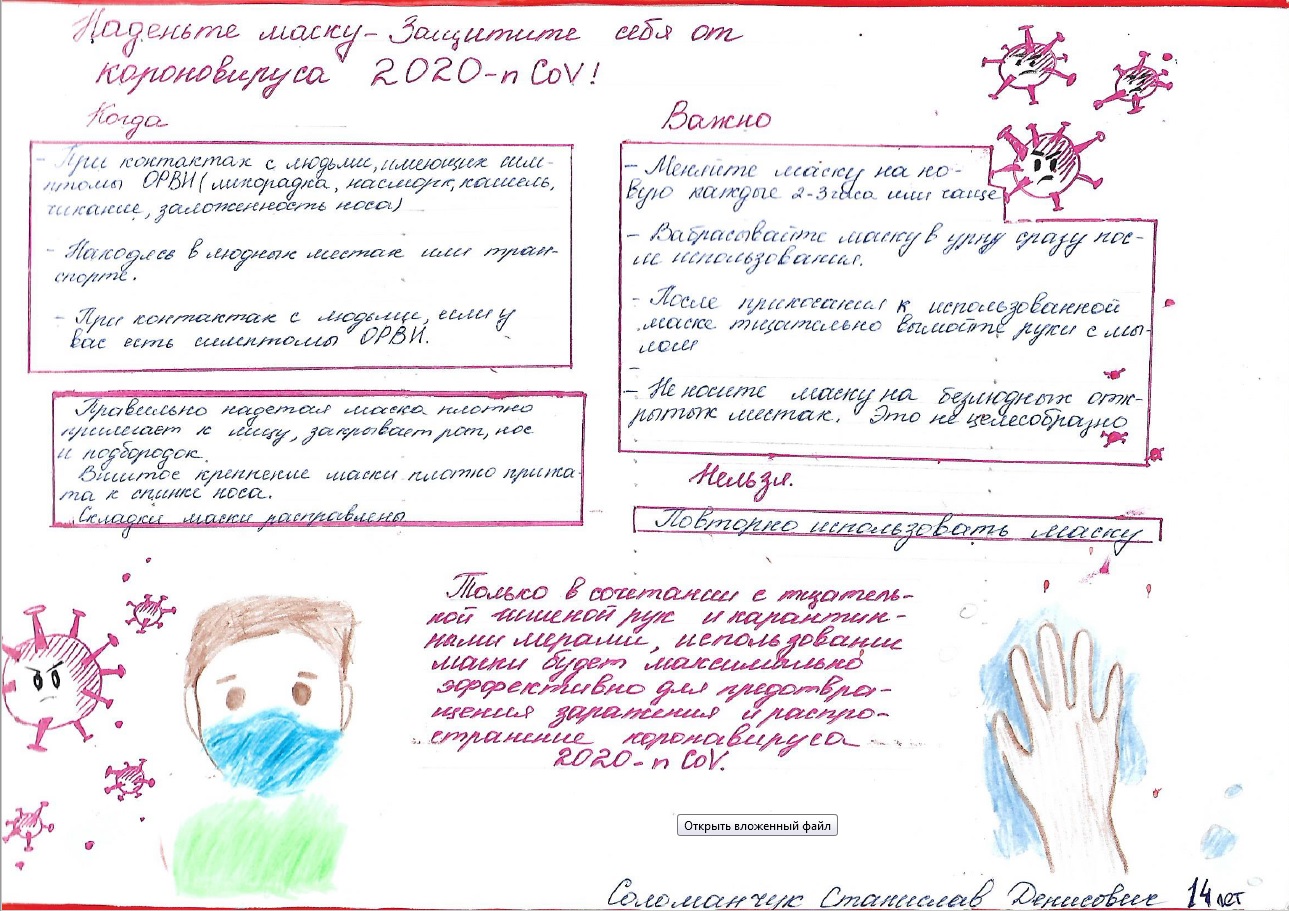 Наденьте маску - Защитите себя от
короновируса 2020-n CoV!
Когда
- При контактах с людьми, имеющих сим-
птомы ОРВИ (лихорадка, насморк, кашель,
чихание, заложенность носа)
- Находясь в людных местах или тран-
спорте.
- При контактах с людьми, если у
вас есть симптомы ОРВИ.
Правильно надетая маска плотно
прилегает к лицу, закрывает рот, нос
и подбородок.
Вшитое крепление маски плотно прижа-
та к спинке носа.
Складки маски расправлены
Важно
- Меняйте маску на но-
вую каждые 2-3 часа или чаще
- Вабрасывайте маску в урну сразу пос-
ле использования.
- После прикосания к использованной
маске тщательно вымойте руки с мы-
лом
- Не носите маску на безлюдных отк-
рытых местах. Это не целесобразно
Нельзя.
Повторно использовать маску
Только в сочетании с тщатель-
ной гигиеной рук и карантин-
ными мерами, использование
маски будет максимально
эффективно для предотвра-
щения заражения и распро-
странение коронавируса
2020-n CoV.
Открыть вложенный файл
Соломанчук Станислав Денисович 14 лет